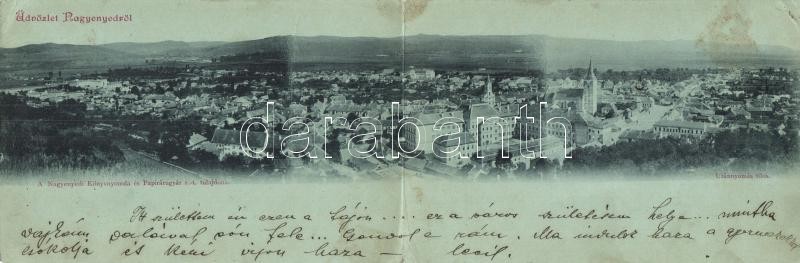 Üdvözlet Nagyenyedről
darabanth
A Nagyenyedi Könyvnyomda és Papírárugyár r.-t. tulajdona.
Utánnyomás tilos.
Itt születtem én ezen a tájon .... ez a város születésem helye... mintha
vajkám dalával von fele... Gondol rám. Ma indulok haza a
csókolja és kéri írjon haza —